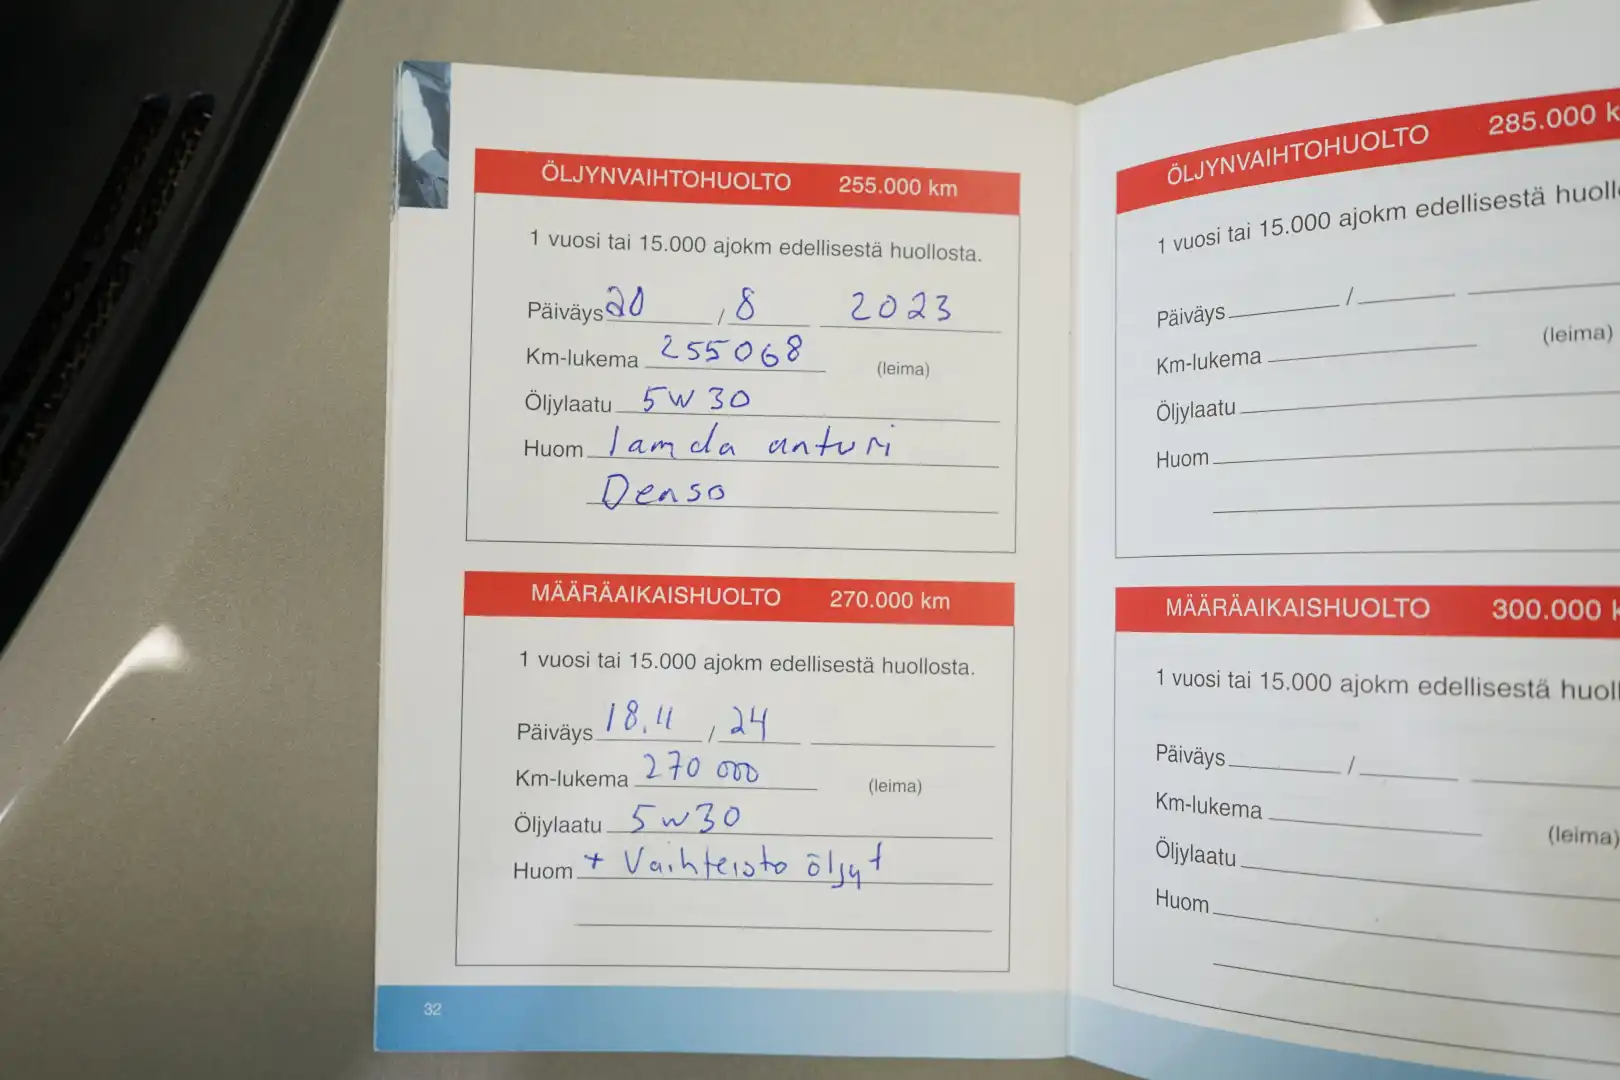 ÖLJYNVAIHTOHUOLTO 255.000 km
1 vuosi tai 15.000 ajokm edellisestä huollosta.
Päiväys 20 / 8 2023
Km-lukema 255068 (leima)
Öljylaatu 5W30
Huom lamda anturi
Denso
MÄÄRÄAIKAISHUOLTO 270.000 km
1 vuosi tai 15.000 ajokm edellisestä huollosta.
Päiväys 18.11 / 24
Km-lukema 270 000 (leima)
Öljylaatu 5w30
Huom + Vaihteisto öljyt
32
ÖLJYNVAIHTOHUOLTO 285.000 k
1 vuosi tai 15.000 ajokm edellisestä huoll
Päiväys /
Km-lukema (leima)
Öljylaatu
Huom
MÄÄRÄAIKAISHUOLTO 300.000 k
1 vuosi tai 15.000 ajokm edellisestä huoll
Päiväys /
Km-lukema (leima)
Öljylaatu
Huom